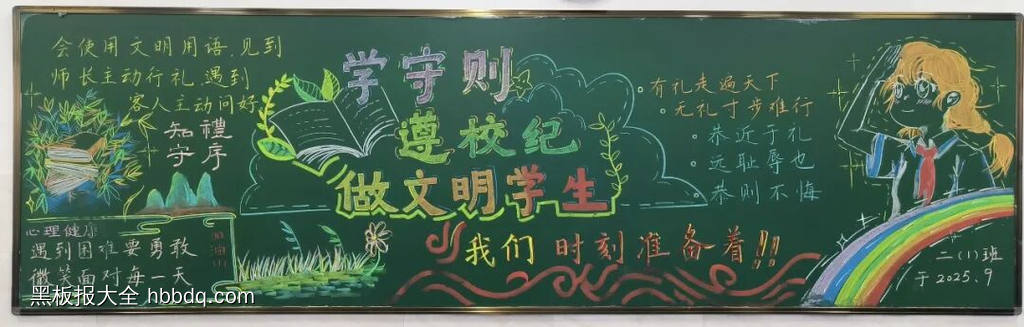 会使用文明用语,见到
师长主动行礼,遇到
客人主动问好
知禮
守序
心理健康
遇到困难要勇敢
微笑面对每一天
加油!!
学守则
遵校纪
做文明学生
我们时刻准备着!!
有礼走遍天下
无礼寸步难行
恭近于礼
远耻辱也
恭则不侮
二(1)班
于2025.9
黑板报大全 hbbdq.com